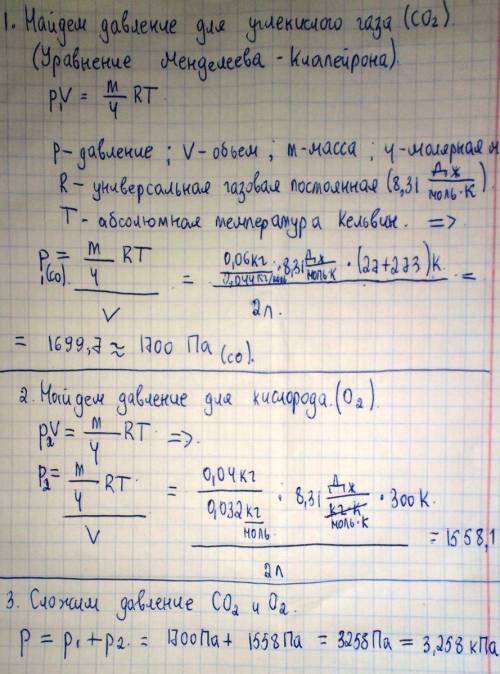 1. Найдем давление для углекислого газа (CO₂)
(Уравнение Менделеева - Клапейрона).
p₁V = m/ч RT
p - давление ; V - обьем ; m - масса ; ч - молярная
R - универсальная газовая постоянная (8,31 Дж/моль·К)
T - абсолютная температура Кельвин. =>
P₁(CO) = (m/ч RT)/V = (0,06кг/0,044кг/моль · 8,31 Дж/моль·К · (27+273)К)/2л. =
= 1699,7 ≈ 1700 Па (CO).
2. Найдем давление для кислорода. (O₂).
p₂V = m/ч RT =>.
p₂ = (m/ч RT)/V = (0,04кг/0,032кг/моль · 8,31 Дж/моль·К · 300К.)/2л = 1558,1
3. Сложим давление CO₂ и O₂.
P = p₁ + p₂ = 1700Па + 1558Па = 3258Па = 3,258 кПа